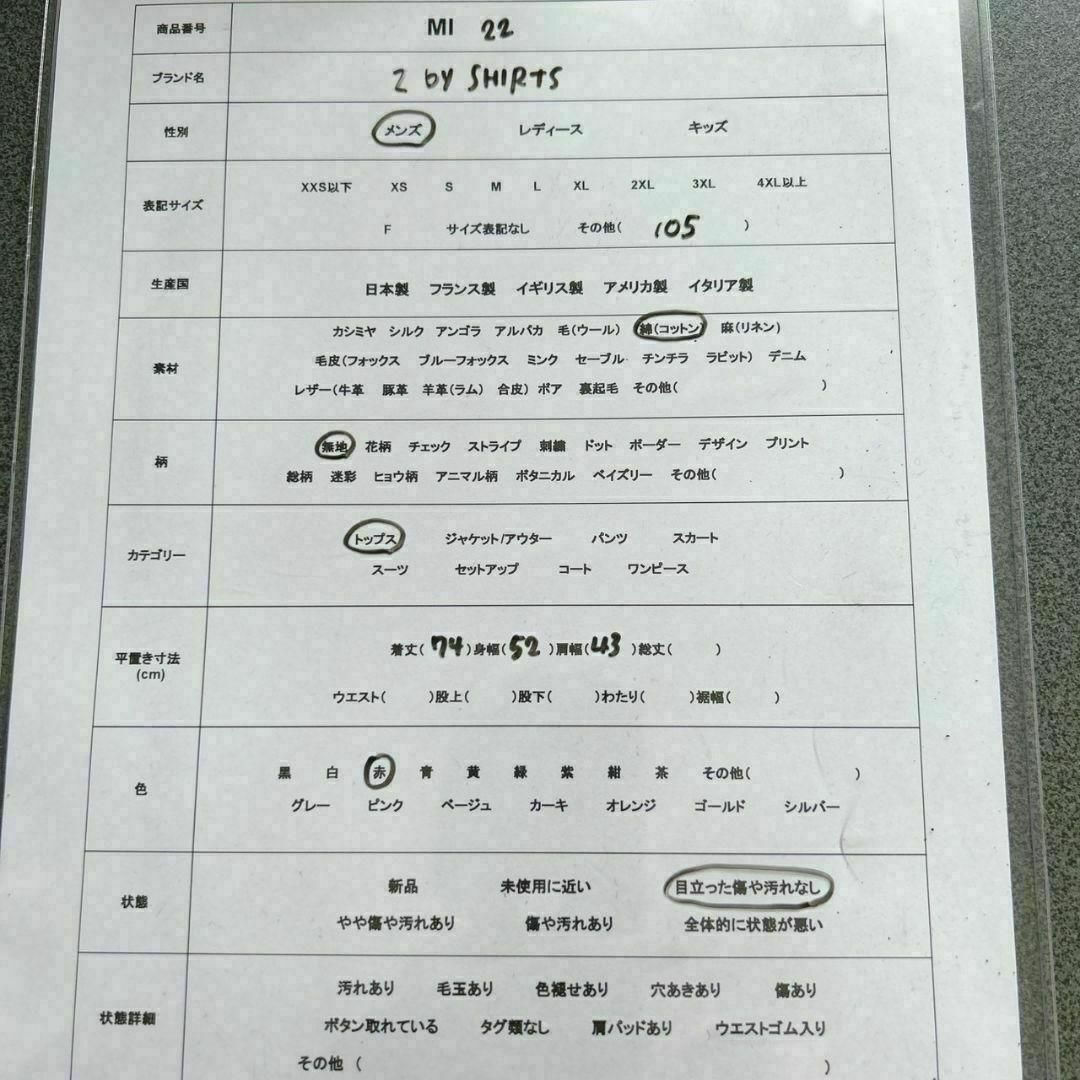 商品番号 MI 22
ブランド名 2 by SHIRTS
性別 メンズ レディース キッズ
表記サイズ
XXS以下 XS S M L XL 2XL 3XL 4XL以上
F サイズ表記なし その他( 105 )
生産国 日本製 フランス製 イギリス製 アメリカ製 イタリア製
素材
カシミヤ シルク アンゴラ アルパカ 毛(ウール) 綿(コットン) 麻(リネン)
毛皮(フォックス ブルーフォックス ミンク セーブル チンチラ ラビット) デニム
レザー(牛革 豚革 羊革(ラム) 合皮) ボア 裏起毛 その他( )
柄
無地 花柄 チェック ストライプ 刺繍 ドット ボーダー デザイン プリント
総柄 迷彩 ヒョウ柄 アニマル柄 ボタニカル ペイズリー その他( )
カテゴリー
トップス ジャケット/アウター パンツ スカート
スーツ セットアップ コート ワンピース
平置き寸法
(cm)
着丈( 74 )身幅( 52 )肩幅( 43 )総丈( )
ウエスト( )股上( )股下( )わたり( )裾幅( )
色
黒 白 赤 青 黄 緑 紫 紺 茶 その他( )
グレー ピンク ベージュ カーキ オレンジ ゴールド シルバー
状態
新品 未使用に近い 目立った傷や汚れなし
やや傷や汚れあり 傷や汚れあり 全体的に状態が悪い
状態詳細
汚れあり 毛玉あり 色褪せあり 穴あきあり 傷あり
ボタン取れている タグ類なし 肩パッドあり ウエストゴム入り
その他 ( )